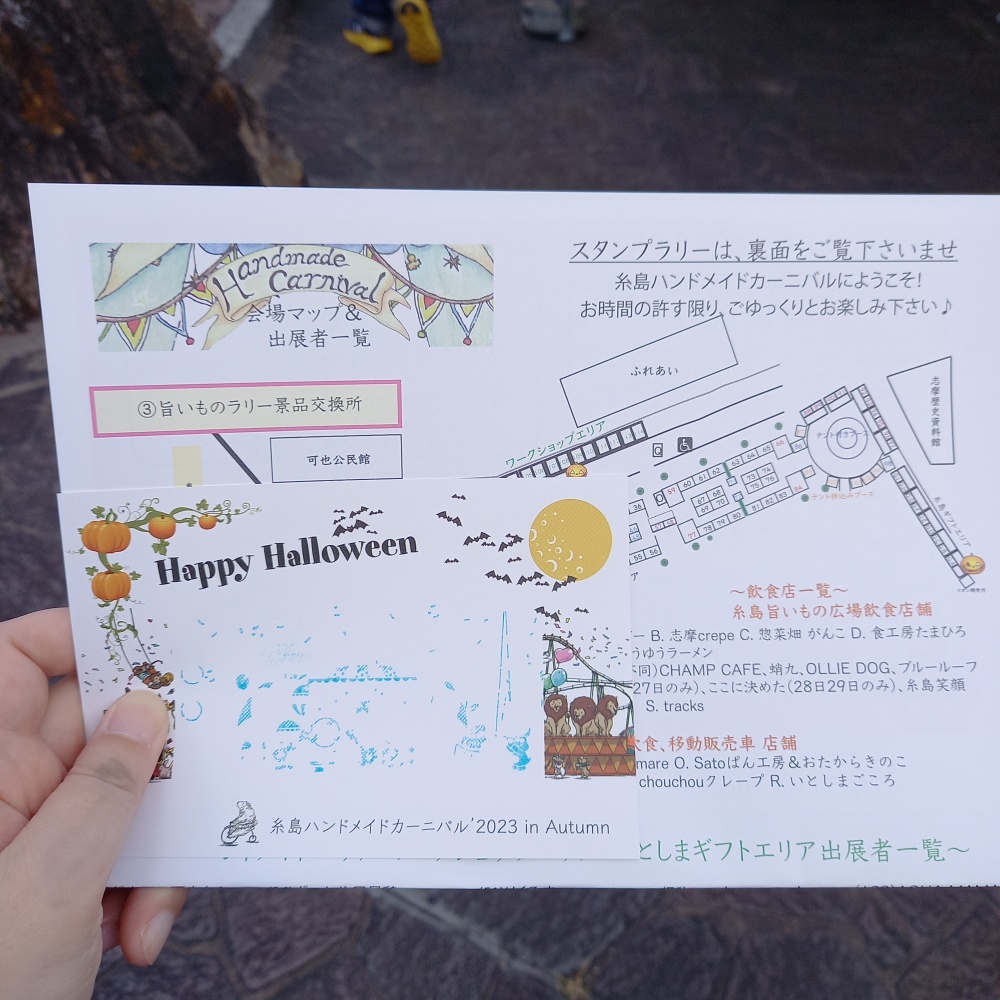 Handmade
Carnival
会場マップ&
出展者一覧
スタンプラリーは、裏面をご覧下さいませ
糸島ハンドメイドカーニバルにようこそ!
お時間の許す限り、ごゆっくりとお楽しみ下さい♪
③旨いものラリー景品交換所
可也公民館
ふれあい
ワークショップエリア
志摩歴史資料館
テント付きブース
テント持込みブース
糸島ギフトエリア
59 60 61 62 63 64 65 66
67 68
69 70
73 74
75 76
77 78 79 80 81 82 83 84
86
55 56
～飲食店一覧～
糸島旨いもの広場飲食店舗
B. 志摩crepe C. 惣菜畑 がんこ D. 食工房たまひろ
うゆうラーメン
不同)CHAMP CAFE、蛸九、OLLIE DOG、ブルールーフ
27日のみ)、ここに決めた(28日29日のみ)、糸島笑顔
S. tracks
飲食、移動販売車 店舗
mare O. Satoぱん工房&おたからきのこ
chouchouクレープ R. いとしまごころ
としまギフトエリア出展者一覧～
Happy Halloween
糸島ハンドメイドカーニバル'2023 in Autumn